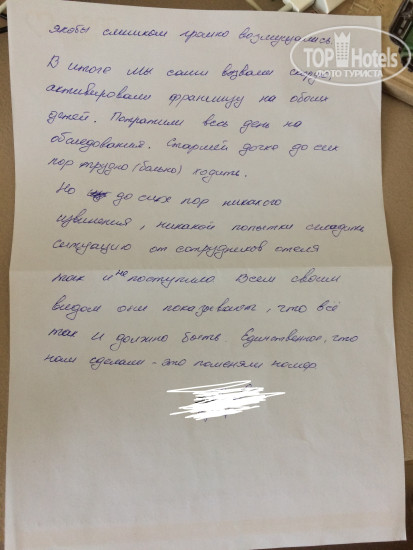 TOP Hotels
ФОТО ТУРИСТА
якобы слишком громко возмущались.
В итоге мы сами вызвали скорую,
активировали франшизу на обоих
детей. Потратили весь день на
обследования. Старшей дочке до сих
пор трудно (больно) ходить.
Но до сих пор никакого
извинения, никакой попытки сгладить
ситуацию от сотрудников отеля
так и не поступило Всем своим
видом они показывают, что всё
так и должно быть Единственное, что
нам сделали - это поменяли номер